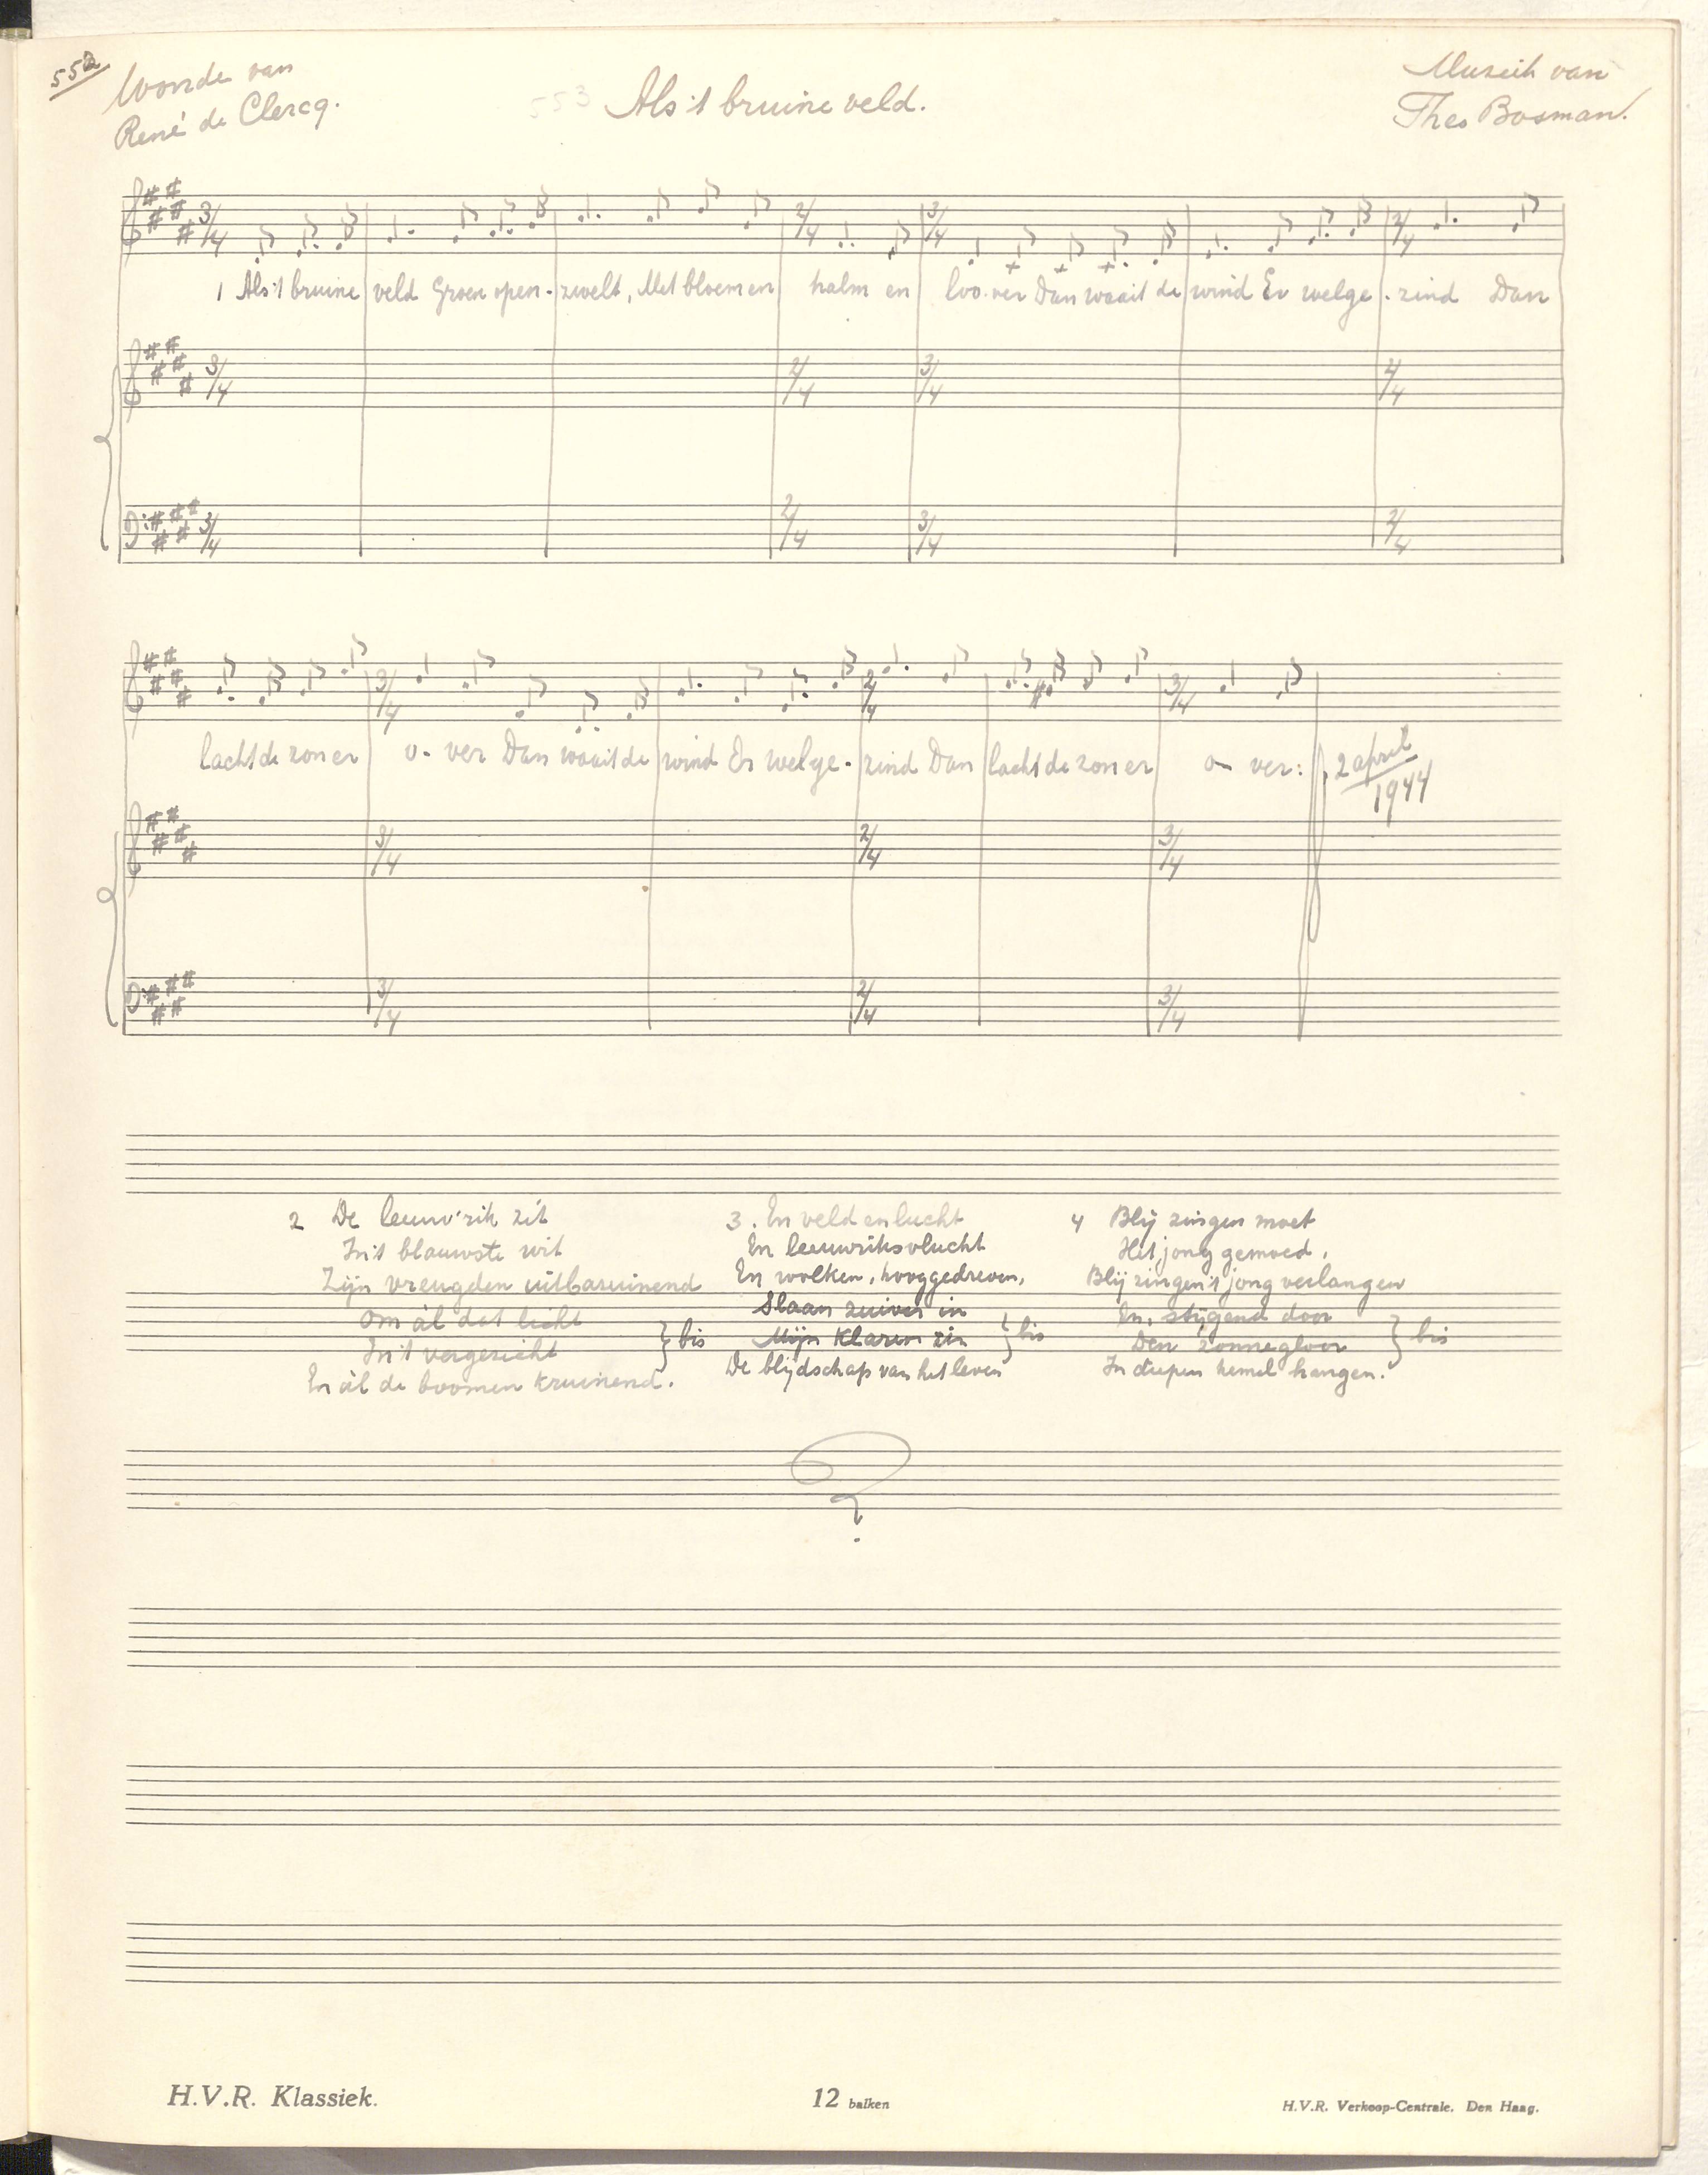 552
Woorden van
René de Clercq.
553
Als 't bruine veld.
Muziek van
Theo Bosman.
3/4 2/4 3/4 2/4
1 Als 't bruine veld Groen open - zwelt, Met bloemen halm en loo.ver Dan waait de wind Er welge - zind Dan
3/4 2/4 3/4 2/4
3/4 2/4 3/4 2/4
3/4 2/4 3/4
lacht de zon er o - ver Dan waait de wind Er welge - zind Dan lacht de zon er o - ver:
2 april
1944
3/4 2/4 3/4
3/4 2/4 3/4
2 De leeuw'rik zit
In 't blauwste wit
Zijn vreugden uitbazuinend
Om àl dat licht
In 't vergezicht
} bis
En àl de boomen kruinend.
3. En veld en lucht
En leeuwriksvlucht
En wolken, hooggedreven,
Slaan zuiver in
Mijn klaren zin
} bis
De blijdschap van het leven
4 Blij zingen moet
Het jong gemoed,
Blij zingen 't jong verlangen
En, stijgend door
Den zonnegloor
} bis
In diepen hemel hangen.
H.V.R. Klassiek.
12 balken
H.V.R. Verkoop-Centrale. Den Haag.